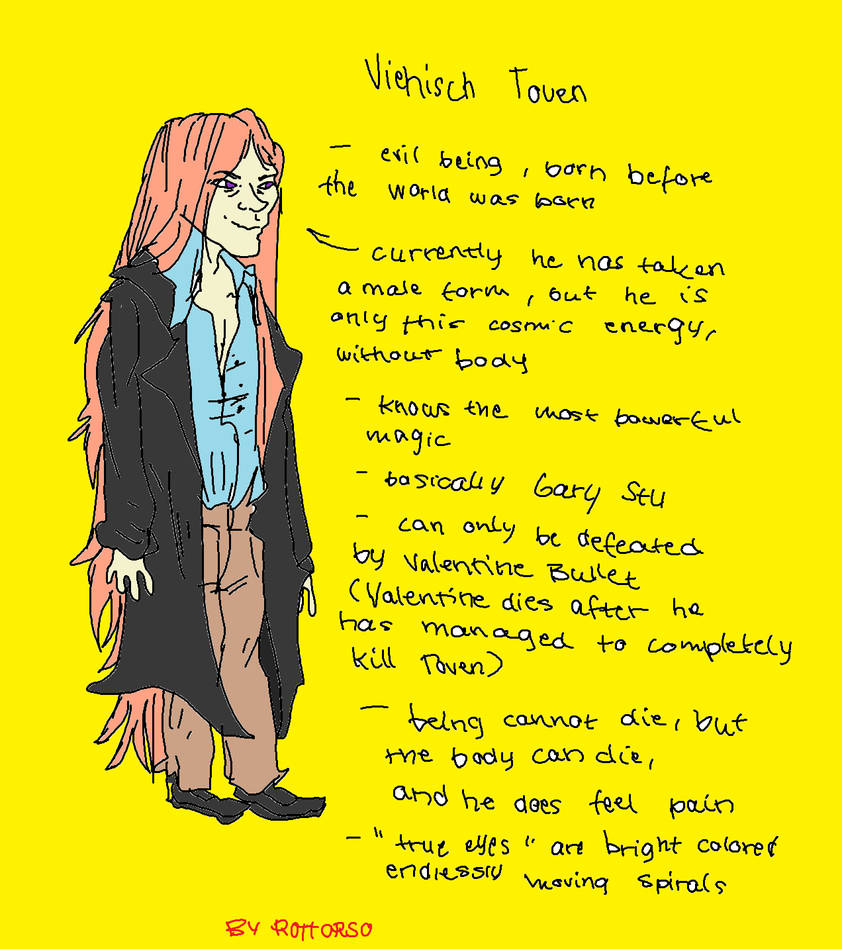 Viehisch Toven
- evil being, born before
the world was born
currently he has taken
a male form, but he is
only this cosmic energy,
without body
- knows the most powerful
magic
- basically Gary Stu
- can only be defeated
by Valentine Bullet
(Valentine dies after he
has managed to completely
kill Toven)
- being cannot die, but
the body can die,
and he does feel pain
- "true eyes" are bright colored
endlessly moving spirals
BY ROTTORSO